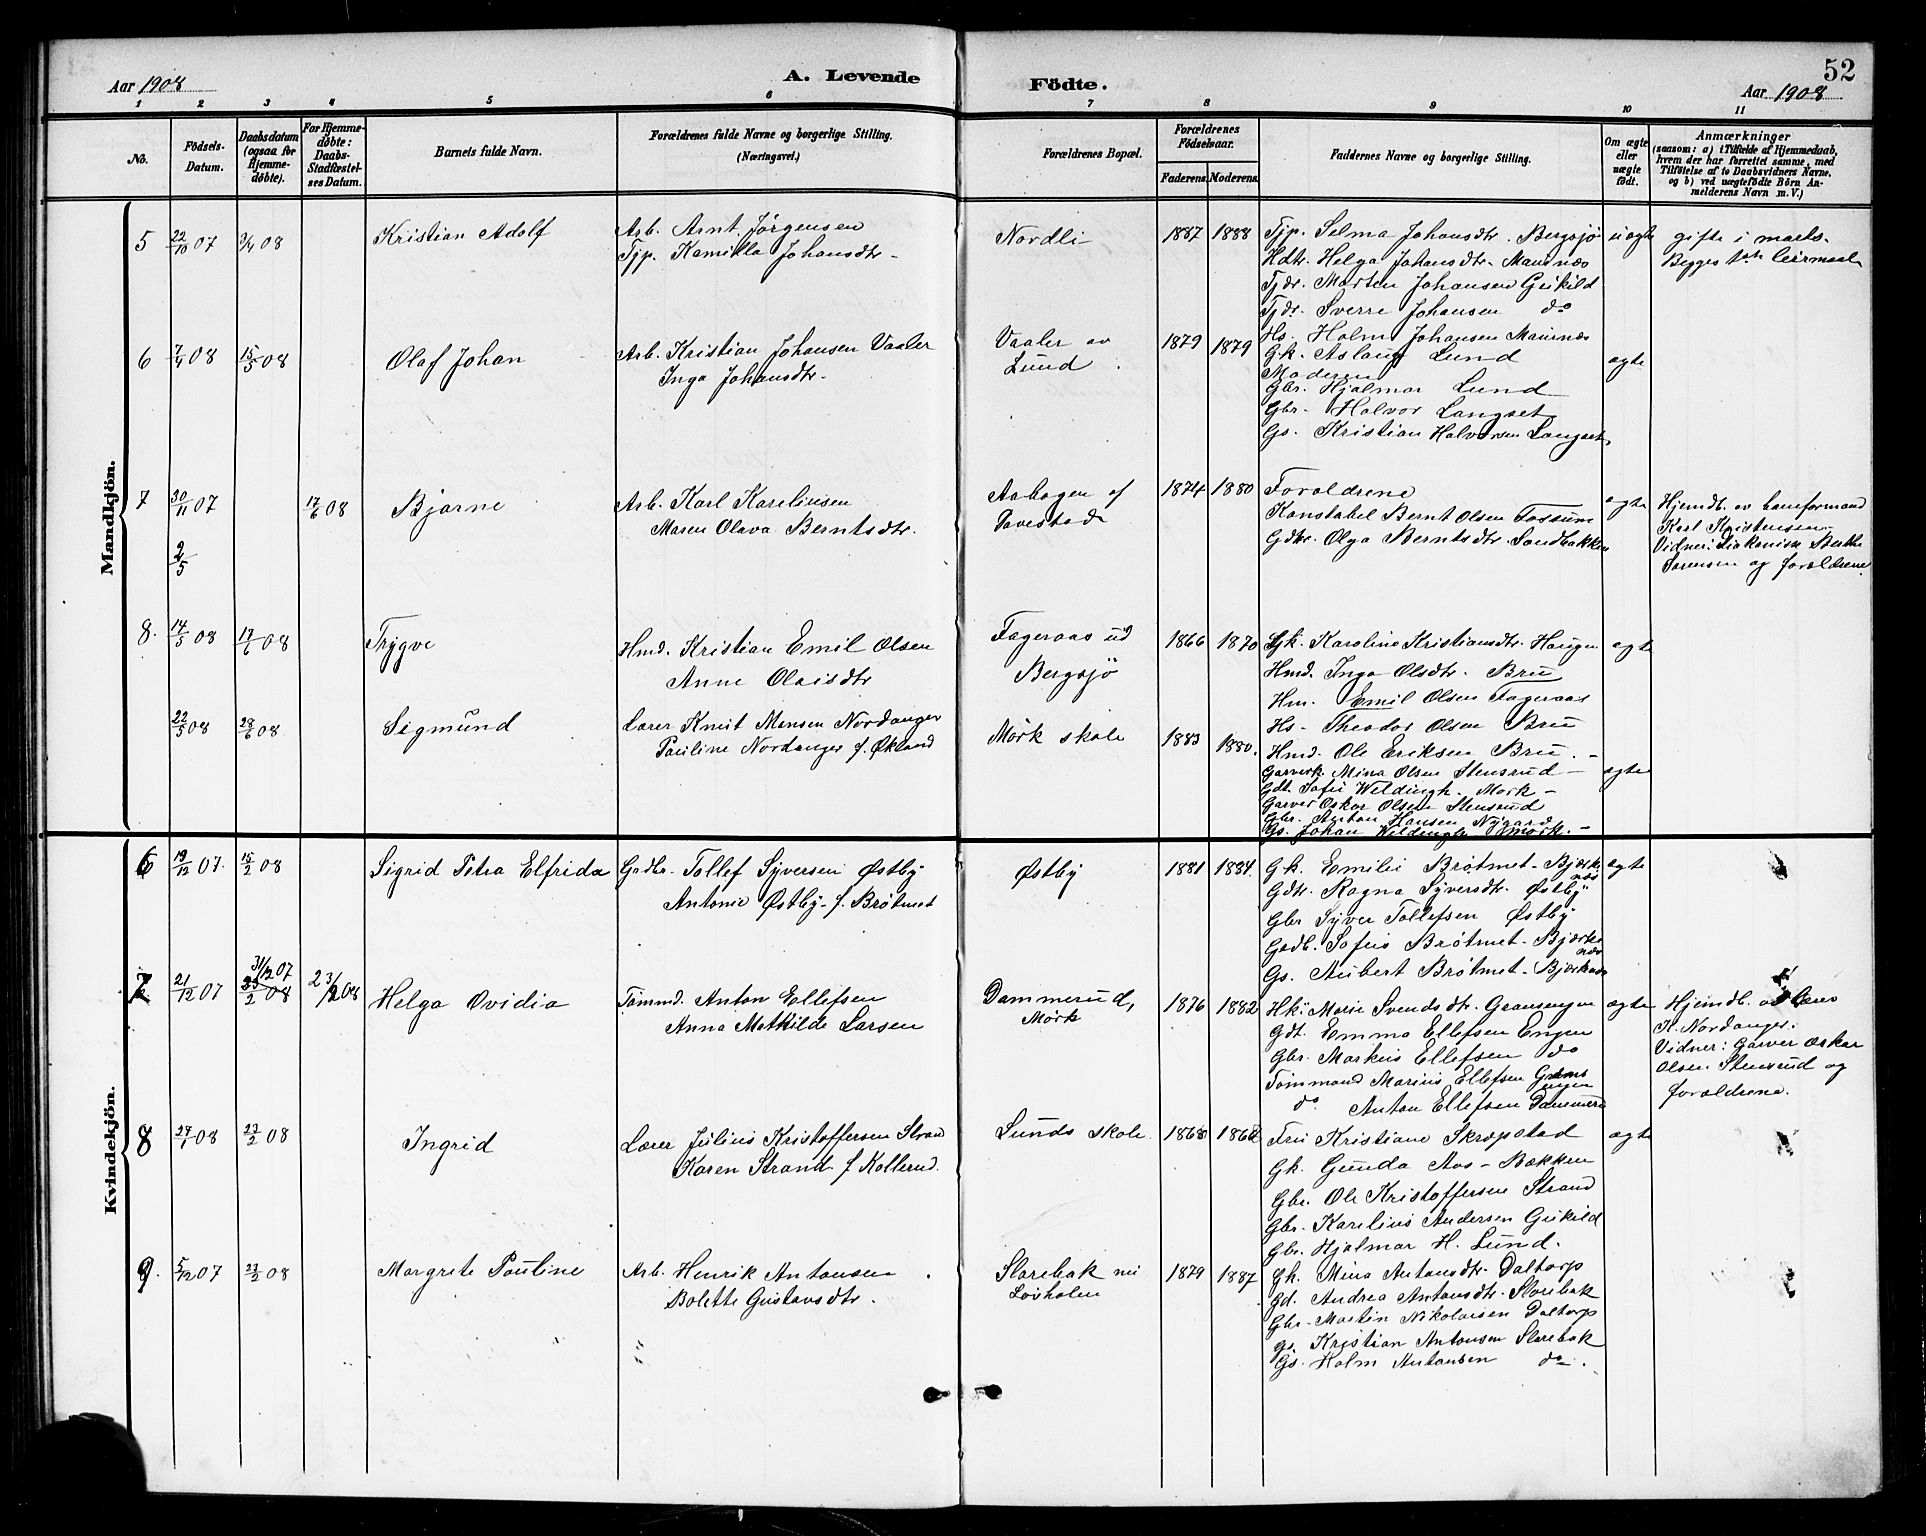 52
Aar 1908
A. Levende
Födte.
Aar 1908
1 2 3 4 5 6 7 8 9 10 11
No.
Födsels-
Datum.
Daabsdatum
(ogsaa for
Hjemme-
døbte).
For Hjemme-
døbte:
Daabs-
Stadfæstel-
ses Datum.
Barnets fulde Navn.
Forældrenes fulde Navne og borgerlige Stilling.
(Næringsvei.)
Forældrenes Bopæl.
Forældrenes
Födselsaar.
Faderens. Moderens.
Faddernes Navne og borgerlige Stilling.
Om ægte
eller
uægte
født.
Anmærkninger
(saasom: a) i Tilfælde af Hjemmedaab,
hvem der har forrettet samme, med
Tilføielse af to Daabsvidners Navne,
og b) ved uægtefødte Börn An-
melderens Navn m. V.)
Mandkjön.
5 22/10 07 3/4 08 Kristian Adolf
Arb. Arnt Jörgensen
Tjp. Kamilla Johansdtr
Nordli 1887 1888
Tjp. Selma Johansdtr. Bergsjø
Hdtr. Helga Johansdtr. Maurnæs
Tjdr. Morten Johansen Geikild
Tjdr. Sverre Johansen do
Hs. Holm Johansen Maurnæs
uægte
gifte i marts.
Begges 1ste leirmaal
6 7/4 08 15/5 08 Olaf Johan
Arb. Kristian Johansen Vaaler
Inga Johansdtr.
Vaaler av
Lund
1879 1879
Gk. Aslaug Lund
Moderen
Gbr. Hjalmar Lund
Gbr. Halvor Langset
Gs. Kristian Halvorsen Langset
ægte
7 30/11 07 17/6 08 Bjarne
2/5
Arb. Karl Kareliusen
Maren Olava Berntsdtr.
Aabogen af
1874 1880
Forældrene
Konstabel Bernt Olsen Fossum
Gdtr. Olga Berntsdtr. Sandbakken
ægte
Hjemdb. av banformand
Karl Kristensen
Vidner: Diakonisse Berthe
Sørensen og forældrene
8. 14/5 08 17/6 08 Trygve
Hmd. Kristian Emil Olsen
Anne Olaisdtr
Fageraas ud
Bergsjö
1866 1870
Karoline Kristiansdtr. Haugen
Hmd. Inga Olsdtr. Bru
Hm. Emil Olsen Fageraas
Hs. Theodor Olsen Bru
Hmd. Ole Eriksen Bru
ægte
22/5 08 28/6 08 Sigmund
Lærer Knut Monsen Nordanger
Pauline Nordanger f. Økland
Mørk skole 1883 1880.
Garverk. Mina Olsen Stensrud
Gdt. Sofie Weldingh. Mørk
Garver Oskar Olsen Stensrud
Gbr. Anton Hansen Nygaard
Gs. Johan Weldingh Mørk.
ægte
Kvindekjön.
6 19/12 07. 15/2 08 Sigrid Petra Elfrida
Grdbr. Tollef Syversen Østby
Antonie Østby f. Brøtmet
Østby 1881 1884.
Gk. Emilie Brøtmet Bjærknæs
Gdtr. Ragna Syversdtr. Østby
Gbr Syver Tollefsen Østby
Grdb. Sofus Brøtmet Bjærknæs
Gs. Aubert Brøtmet Bjærknæs
ægte
7 21/12 07 31/12 07 23/2 08 23/2 08 Helga Ovidia
Tømmd. Anton Ellefsen
Anna Mathilde Larsen
Dammerud,
Mørk
1876 1882
Hk. Marie Svendsdtr. Gransengen
Gdt. Emma Ellefsen Engen
Gbr. Markus Ellefsen do
Tömmand Marius Ellefsen Gransengen
do Anton Ellefsen Dammerud
ægte
Hjemdb. av lærer
K. Nordanger.
Vidner: Garver Oskar
Olsen Stensrud og
forældrene.
8 27/1 08 23/2 08 Ingrid
Lærer Julius Kristoffersen Strand
Karen Strand f Kollerud.
Lunds skole. 1868 1862
Fru Kristiane Skropstad
Gk. Gunda Aas Bakken
Gbr. Ole Kristoffersen Strand
Gbr. Karelius Andersen Geikild
Gbr. Hjalmar H. Lund.
ægte
9. 5/12 07 23/2 08 Margrete Pauline
Arb. Henrik Antonsen
Bolette Gustavsdtr.
Slorebak
1879 1887
Gk. Mina Antonsdtr. Daltorp
Gd. Andrea Antonsdtr. Slorebak
Gbr. Martin Nikolaisen Daltorp
Gs. Kristian Antonsen Slorebak
Gs. Holm Antonsen do.